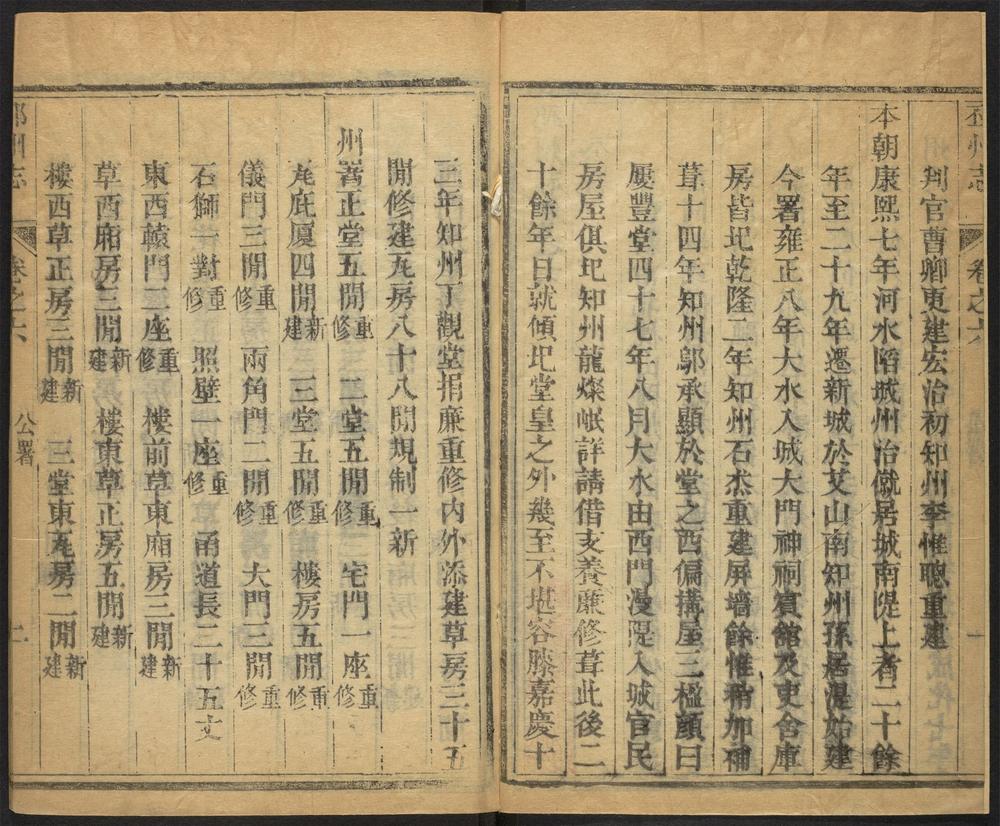 邳州志 卷之六 一
判官曹卿東建宏治初知州李惟聰重建
本朝康熙七年河水陷城州治僦居城南隄上者二十餘
年至二十九年遷新城於艾山南知州孫居湜始建
今署雍正八年大水入城大門神祠賓館及吏舍庫
房皆圮乾隆二年知州石杰重建屏墻餘惟稍加補
葺十四年知州鄔承顯於堂之西偏搆屋三楹顔曰
屢豐堂四十七年八月大水由西門漫隄入城官民
房屋俱圮知州龍燦岷詳請借支養廉修葺此後二
十餘年日就傾圮堂皇之外幾至不堪容膝嘉慶十
三年知州丁觀堂捐廉重修內外添建草房三十五
閒修建瓦房八十八閒規制一新
州署正堂五閒重修 二堂五閒重修 宅門一座重修
瓦庇厦四閒新建 三堂五閒重修 樓房五閒重修
儀門三閒重修 兩角門二閒重修 大門三閒重修
石獅一對重修 照壁一座重修 甬道長二十五丈
東西轅門二座重修 樓前草東廂房三閒新建
草西廂房三閒新建 樓東草正房五閒新建
樓西草正房三閒新建 三堂東瓦房二閒新建
邳州志 卷之六 公署 二